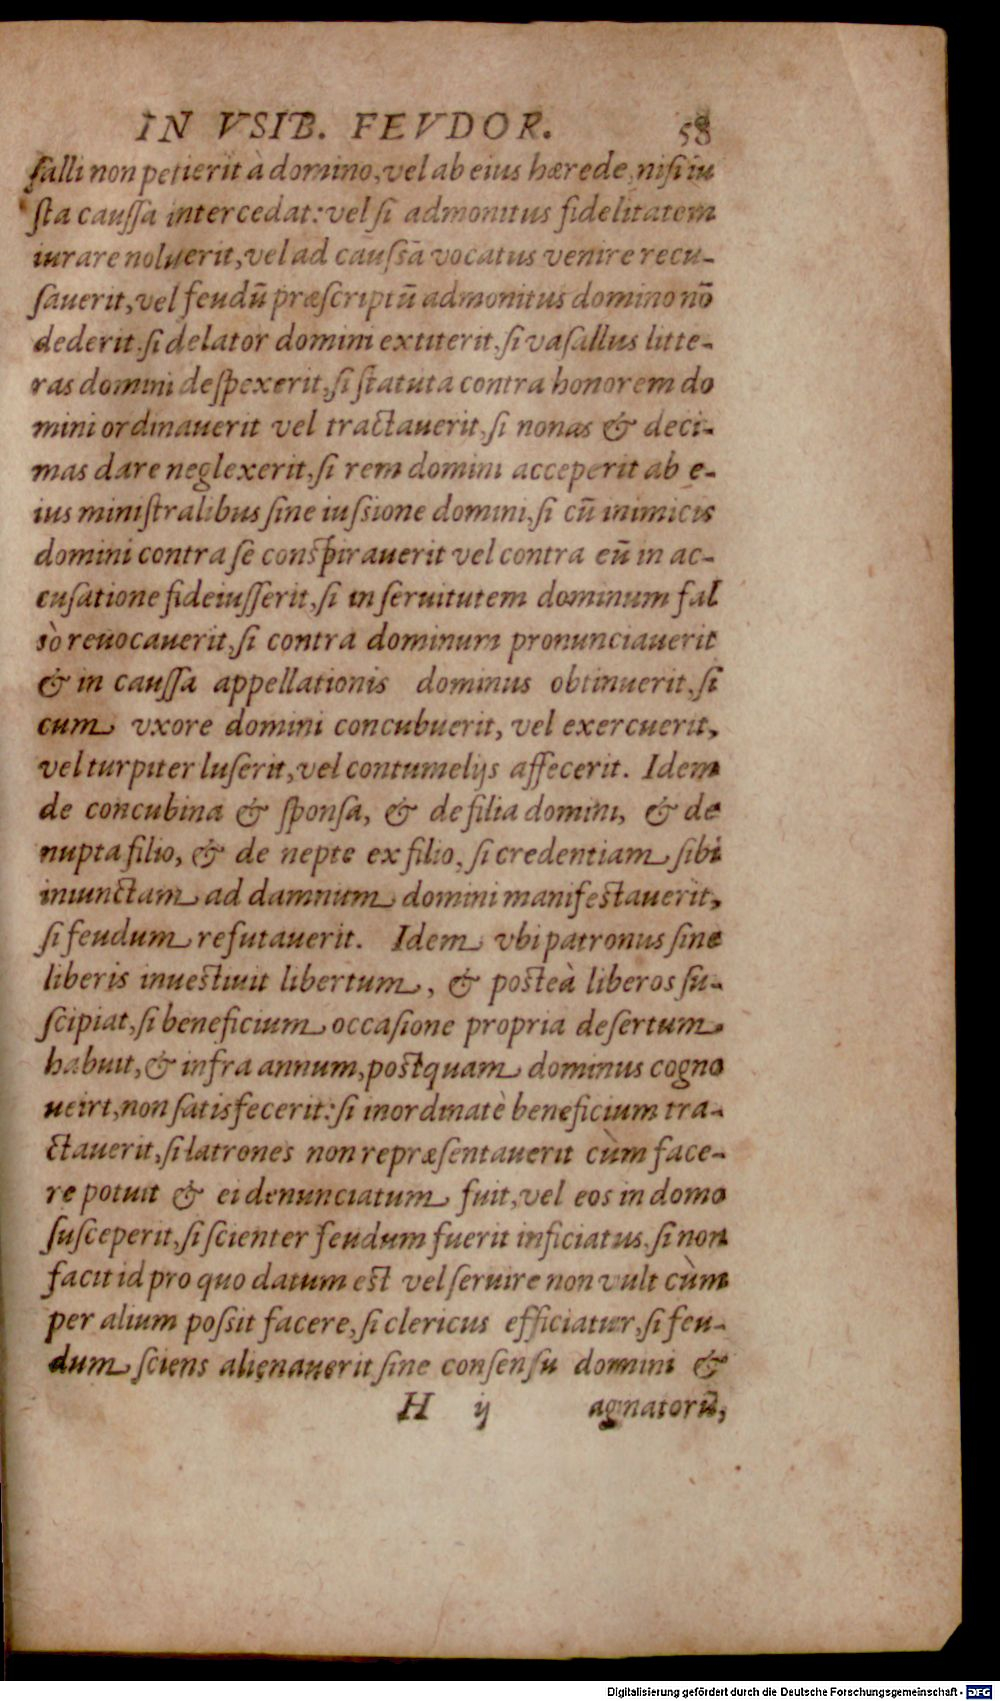 IN VSIB. FEVDOR. 58
ſalli non petierit à domino, vel ab eius hærede, niſi iu
ſta cauſſa intercedat: vel ſi admonitus fidelitatem
iurare noluerit, vel ad cauſsā vocatus venire recu-
ſauerit, vel feudū præſcriptū admonitus domino nō
dederit. ſi delator domini extiterit, ſi vaſallus litte-
ras domini deſpexerit, ſi ſtatuta contra honorem do
mini ordinauerit vel tractauerit, ſi nonas & deci-
mas dare neglexerit, ſi rem domini acceperit ab e-
ius miniſtralibus ſine iuſsione domini, ſi cū inimicis
domini contra ſe conſpirauerit vel contra eū in ac-
cuſatione fideiuſſerit, ſi in ſeruitutem dominum fal
sò reuocauerit, ſi contra dominum pronunciauerit
& in cauſſa appellationis dominus obtinuerit, ſi
cum vxore domini concubuerit, vel exercuerit,
vel turpiter luſerit, vel contumelijs affecerit. Idem
de concubina & ſponſa, & de filia domini, & de
nupta filio, & de nepte ex filio, ſi credentiam ſibi
iniunctam ad damnum domini manifeſtauerit,
ſi feudum refutauerit. Idem vbi patronus ſine
liberis inueſtiuit libertum, & poſteà liberos ſu-
ſcipiat, ſi beneficium occaſione propria deſertum
habuit, & infra annum, poſtquam dominus cogno
ueirt, non ſatisfecerit: ſi inordinatè beneficium tra-
ctauerit, ſi latrones non repræſentauerit cùm face-
re potuit & ei denunciatum fuit, vel eos in domo
ſuſceperit, ſi ſcienter feudum fuerit inficiatus, ſi non
facit id pro quo datum eſt vel ſeruire non vult cùm
per alium poſsit facere, ſi clericus efficiatur, ſi feu-
dum ſciens alienauerit ſine conſenſu domini &
H ij agnatorū,
Digitalisierung gefördert durch die Deutsche Forschungsgemeinschaft - DFG